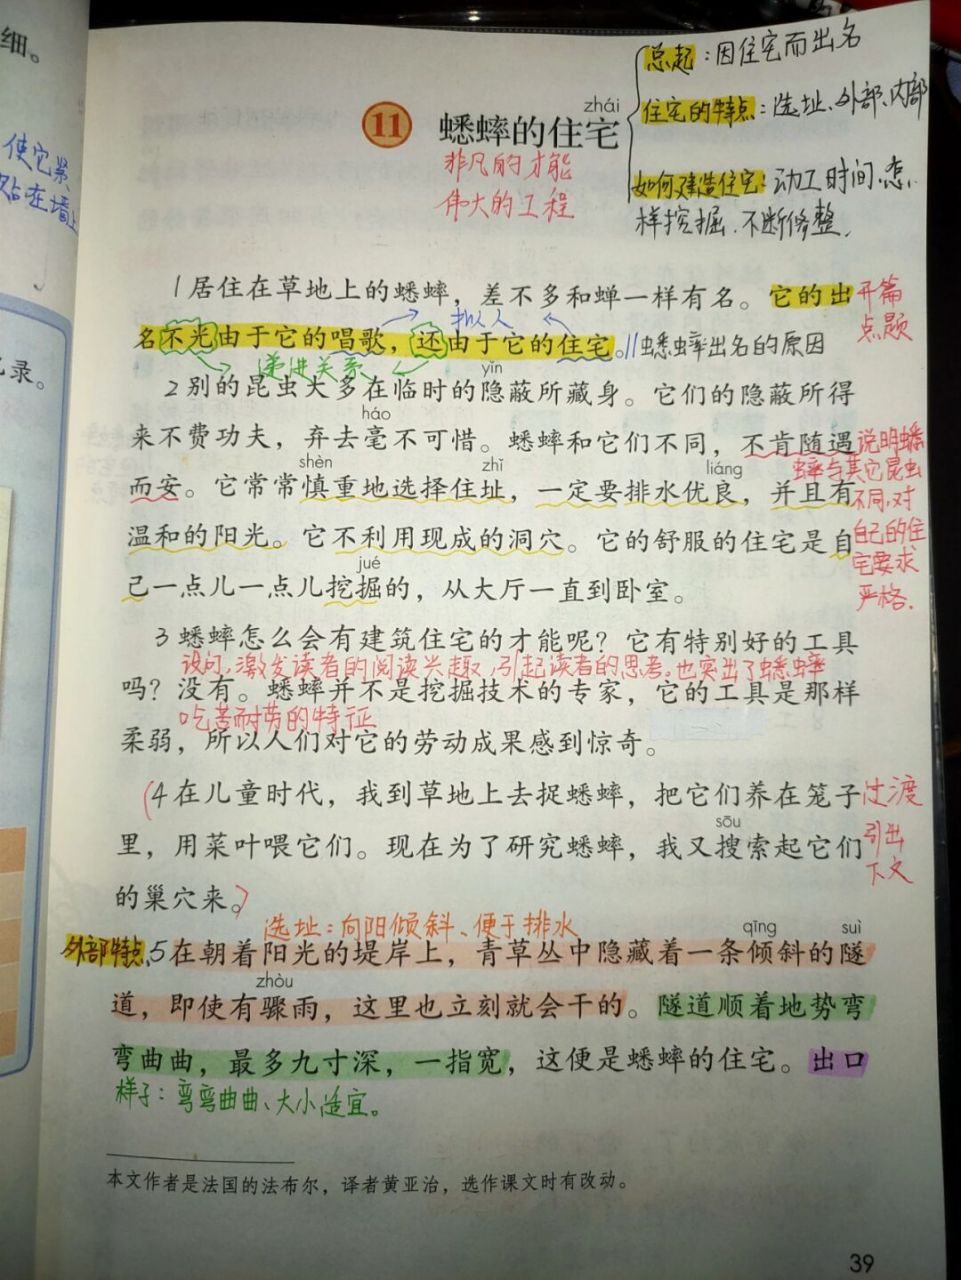 细。
使它紧
贴在墙上
记录。
总起：因住宅而出名
住宅的特点：选址、外部、内部
如何建造住宅：动工时间、怎
样挖掘、不断修整。
zhái
11 蟋蟀的住宅
非凡的才能
伟大的工程
1居住在草地上的蟋蟀，差不多和蝉一样有名。它的出
开篇
点题
拟人
名不光由于它的唱歌，还由于它的住宅。//蟋蟀出名的原因
递进关系
yǐn
2别的昆虫大多在临时的隐蔽所藏身。它们的隐蔽所得
háo
来不费功夫，弃去毫不可惜。蟋蟀和它们不同，不肯随遇
说明蟋
蟀与其它昆虫
不同，对
自己的住
宅要求
严格.
shèn zhǐ liáng
而安。它常常慎重地选择住址，一定要排水优良，并且有
温和的阳光。它不利用现成的洞穴。它的舒服的住宅是自
jué
己一点儿一点儿挖掘的，从大厅一直到卧室。
3蟋蟀怎么会有建筑住宅的才能呢？它有特别好的工具
设问，激发读者的阅读兴趣，引起读者的思考。也突出了蟋蟀
吗？没有。蟋蟀并不是挖掘技术的专家，它的工具是那样
吃苦耐劳的特征
柔弱，所以人们对它的劳动成果感到惊奇。
(4在儿童时代，我到草地上去捉蟋蟀，把它们养在笼子
过渡
引出
下文
sōu
里，用菜叶喂它们。现在为了研究蟋蟀，我又搜索起它们
的巢穴来。)
选址：向阳倾斜、便于排水
qīng suì
外部特点
5在朝着阳光的堤岸上，青草丛中隐藏着一条倾斜的隧
zhòu
道，即使有骤雨，这里也立刻就会干的。隧道顺着地势弯
弯曲曲，最多九寸深，一指宽，这便是蟋蟀的住宅。出口
样子：弯弯曲曲、大小适宜。
本文作者是法国的法布尔，译者黄亚治，选作课文时有改动。
39